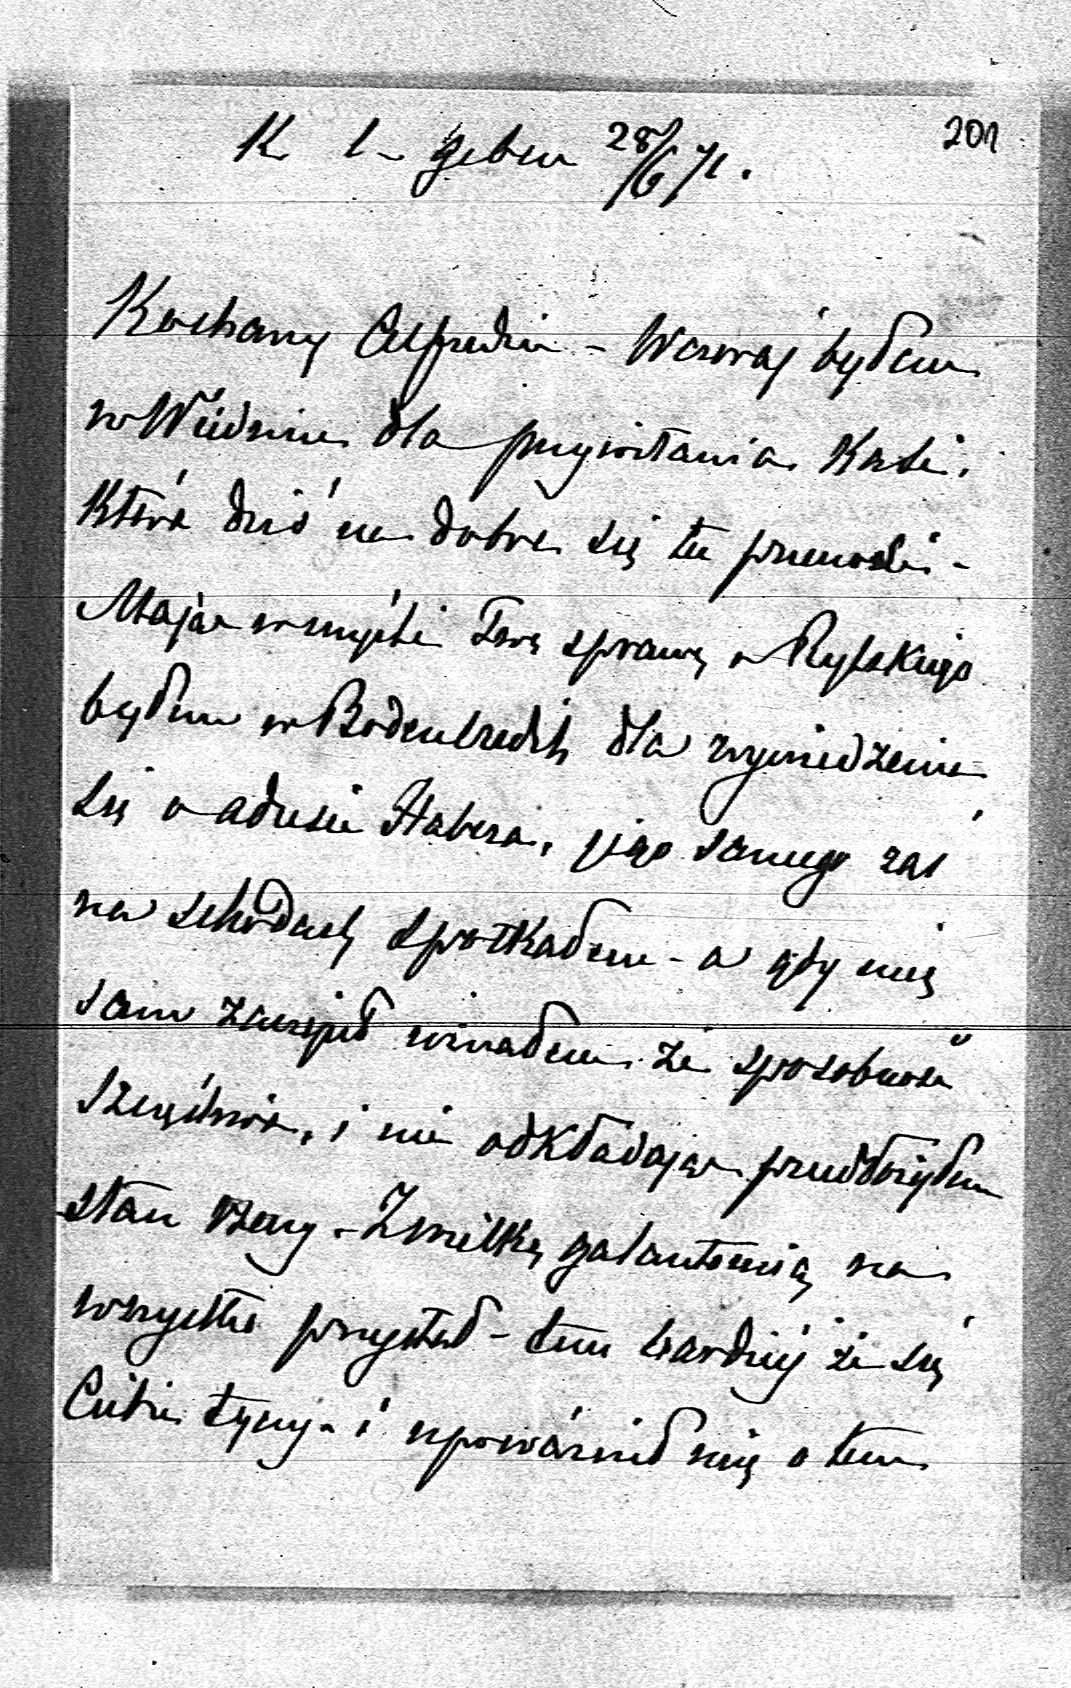 201
K. L. geben 28/6 71.
Kochany Alfredzie - Wczoraj byłem
w Wiedniu dla przywitania Kasi,
która dziś na dobre się tu przenosi -
Mając w myśli Twą sprawę o Rylskiego
byłem w Bodencredit dla wywiedzenia
się o adresie Habera, jego samego zaś
na schodach spotkałem - a gdy mię
sam zaczepił wiedziałem że sposobność
szczęśliwa, i nie odkładając przedłożyłem
stan rzeczy - Z wielką galanterią na
wszystko przystał - tem bardziej że się
Ciebie tyczy - i upoważnił mię o tem